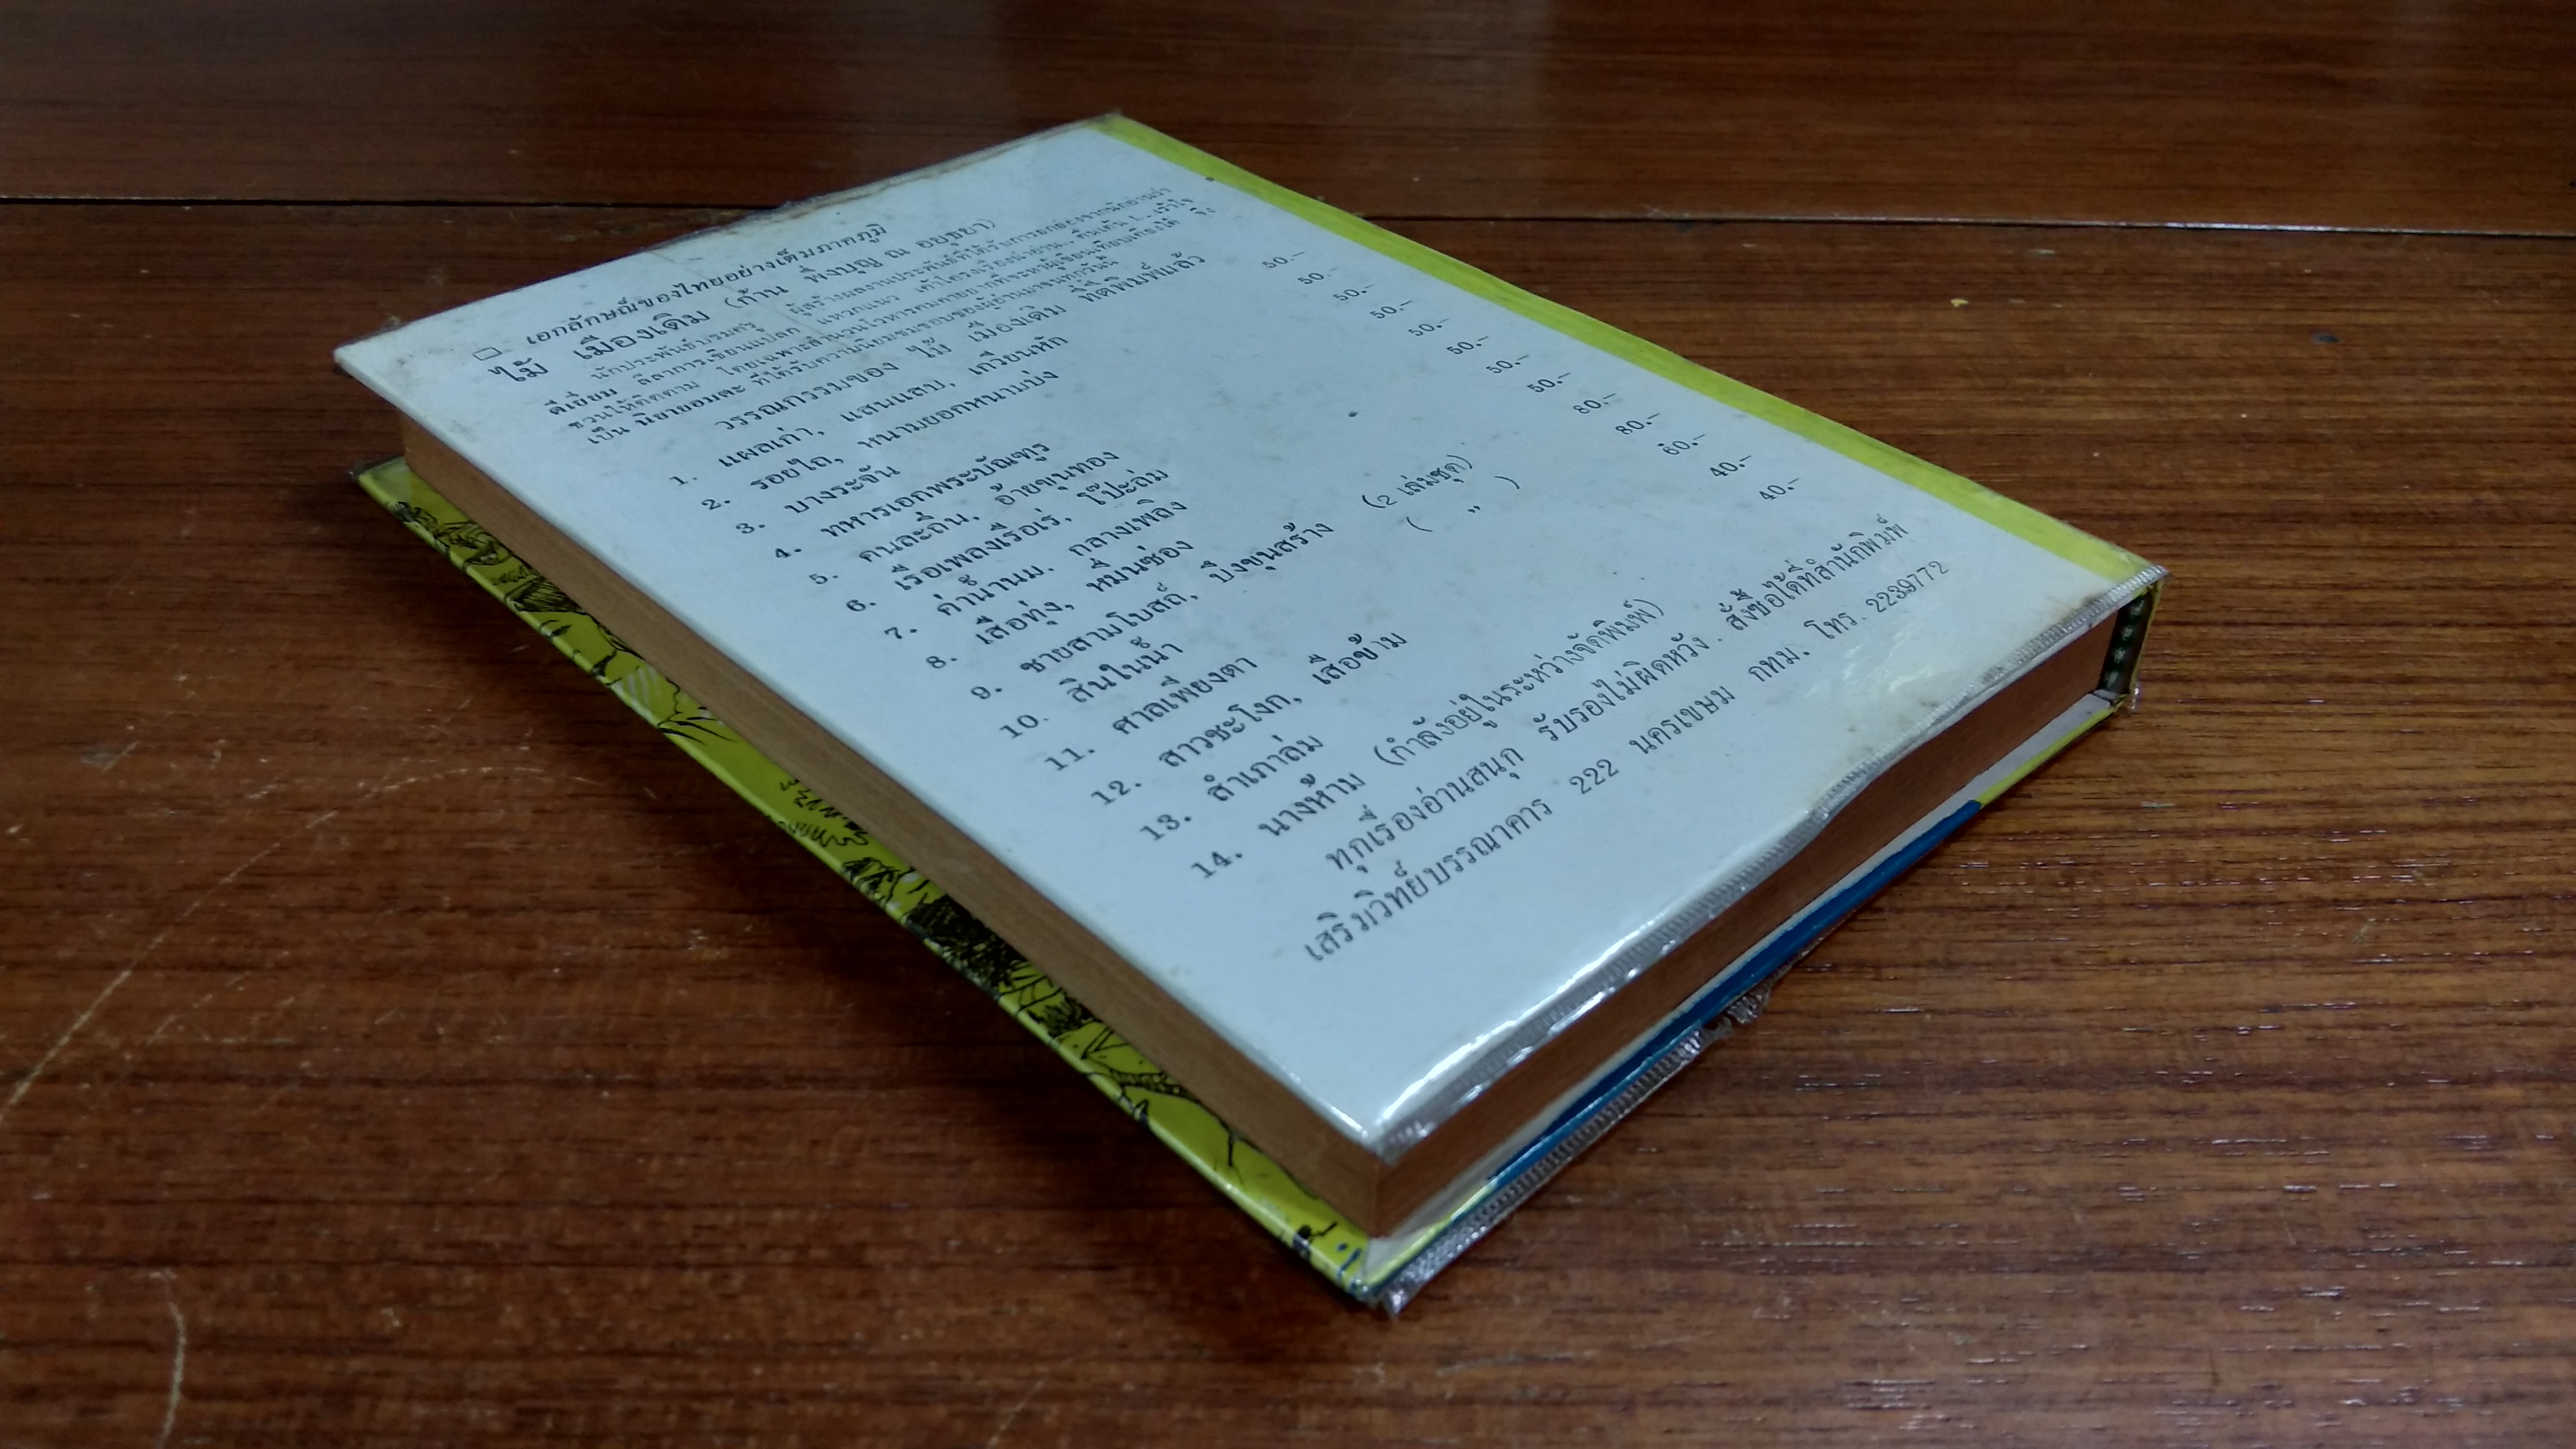 □ เอกลักษณ์ของไทยอย่างเต็มภาคภูมิ
ไม้ เมืองเดิม (ก้าน พึ่งบุญ ณ อยุธยา)
นักประพันธ์บรมครู ผู้สร้างผลงานประพันธ์ที่ได้รับการยกย่องจากนักอ่านว่า
ดีเยี่ยม ลีลาการเขียนแปลก แหวกแนว เค้าโครงเรื่องน่าอ่าน.. ตื่นเต้น!.. เร้าใจ
ชวนให้ติดตาม โดยเฉพาะสำนวนโวหารคมคายยากที่จะหาผู้เขียนเทียบเคียงได้ จึง
เป็น นิยายอมตะ ที่ได้รับความนิยมชมชอบของผู้อ่านมาจนทุกวันนี้
วรรณกรรมของ ไม้ เมืองเดิม ที่ตีพิมพ์แล้ว
1. แผลเก่า, แสนแสบ, เกวียนหัก 50.-
2. รอยไถ, หนามยอกหนามบ่ง 50.-
3. บางระจัน 50.-
4. ทหารเอกพระบัณฑูร 50.-
5. คนละถิ่น, อ้ายขุนทอง 50.-
6. เรือเพลงเรือเร่, โป๊ะล่ม 50.-
7. ค่าน้ำนม. กลางเพลิง 50.-
8. เสือทุ่ง, หมื่นซ่อง 50.-
9. ชายสามโบสถ์, บึงขุนสร้าง (2 เล่มชุด) 80.-
10. สินในน้ำ ( ,, ) 80.-
11. ศาลเพียงตา 60.-
12. สาวชะโงก, เสือข้าม 40.-
13. สำเภาล่ม 40.-
14. นางห้าม (กำลังอยู่ในระหว่างจัดพิมพ์)
ทุกเรื่องอ่านสนุก รับรองไม่ผิดหวัง. สั่งซื้อได้ที่สำนักพิมพ์
เสริมวิทย์บรรณาคาร 222 นครเขษม กทม. โทร. 2239772